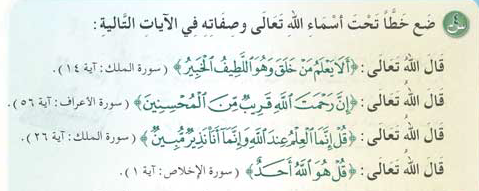 س٤ ضَع خطًّا تَحْتَ أسْمَاءِ اللهِ تَعَالَى وصِفَاتِهِ فِي الآيَاتِ التَّالِيةِ :
قَالَ اللهُ تَعَالَى : ﴿أَلَا يَعْلَمُ مَنْ خَلَقَ وَهُوَ اللَّطِيفُ الْخَبِيرُ﴾ ( سورة الملك: آية ١٤ ) .
قَالَ اللهُ تَعَالَى : ﴿إِنَّ رَحْمَتَ اللَّهِ قَرِيبٌ مِّنَ الْمُحْسِنِينَ﴾ ( سورة الأعراف: آية ٥٦ ) .
قَالَ اللهُ تَعَالَى : ﴿قُلْ إِنَّمَا الْعِلْمُ عِندَ اللَّهِ وَإِنَّمَا أَنَا نَذِيرٌ مُّبِينٌ﴾ ( سورة الملك: آية ٢٦ ) .
قَالَ اللهُ تَعَالَى : ﴿قُلْ هُوَ اللَّهُ أَحَدٌ﴾ ( سورة الإخلاص: آية ١ ) .